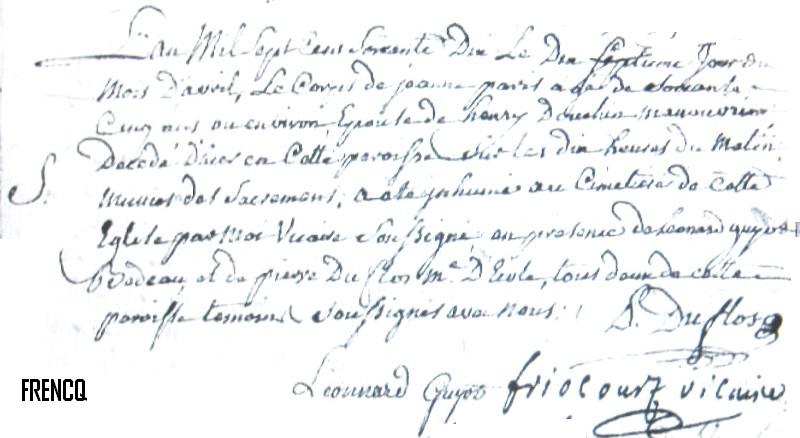 L'an Mil Sept Cens Soixante Dix Le Dix Septieme Jour du
Mois D'avril, Le Corps de joanne paris agée de Soixante
Cinq ans ou environ Epouse de henry manouvrier
Decedé D'hier en Cette paroisse Sur les dix heures du Matin
Munies des Sacremens, a été jnhumé au Cimetiere de Cette
Eglise par Moi Vicaire Soussigné en presence de Léonard guyot
Bedeau, et de pierre Du flos Me D'Ecole, tous deux de cette
paroisse temoins Soussignés avec nous :
S.
P. Duflos
Léonnard Guyot friocourt vicaire
FRENCQ